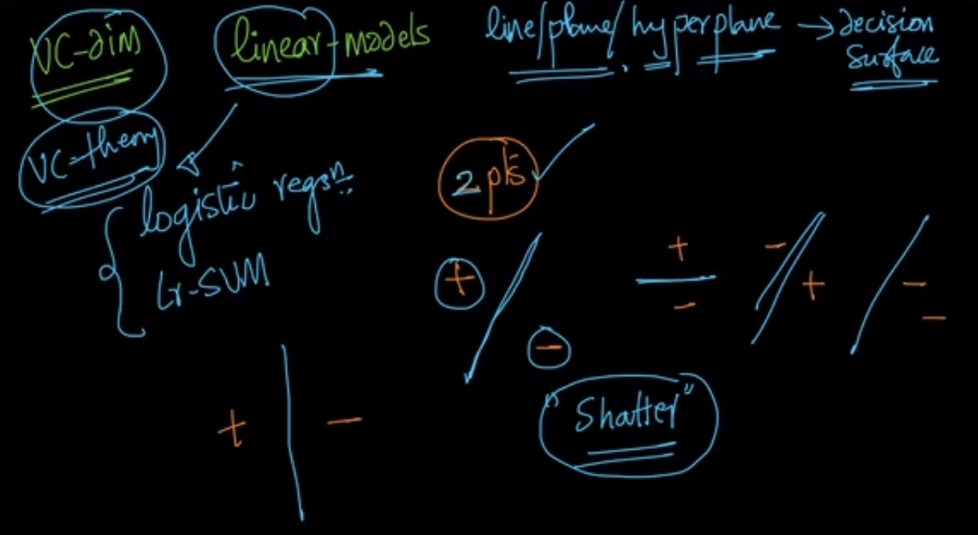 VC-dim linear-models line/plane/hyperplane → decision surface
VC-theory
logistic regsn
Lr-SVM
2 pts
+ - + - - + - -
"Shatter"
+ -